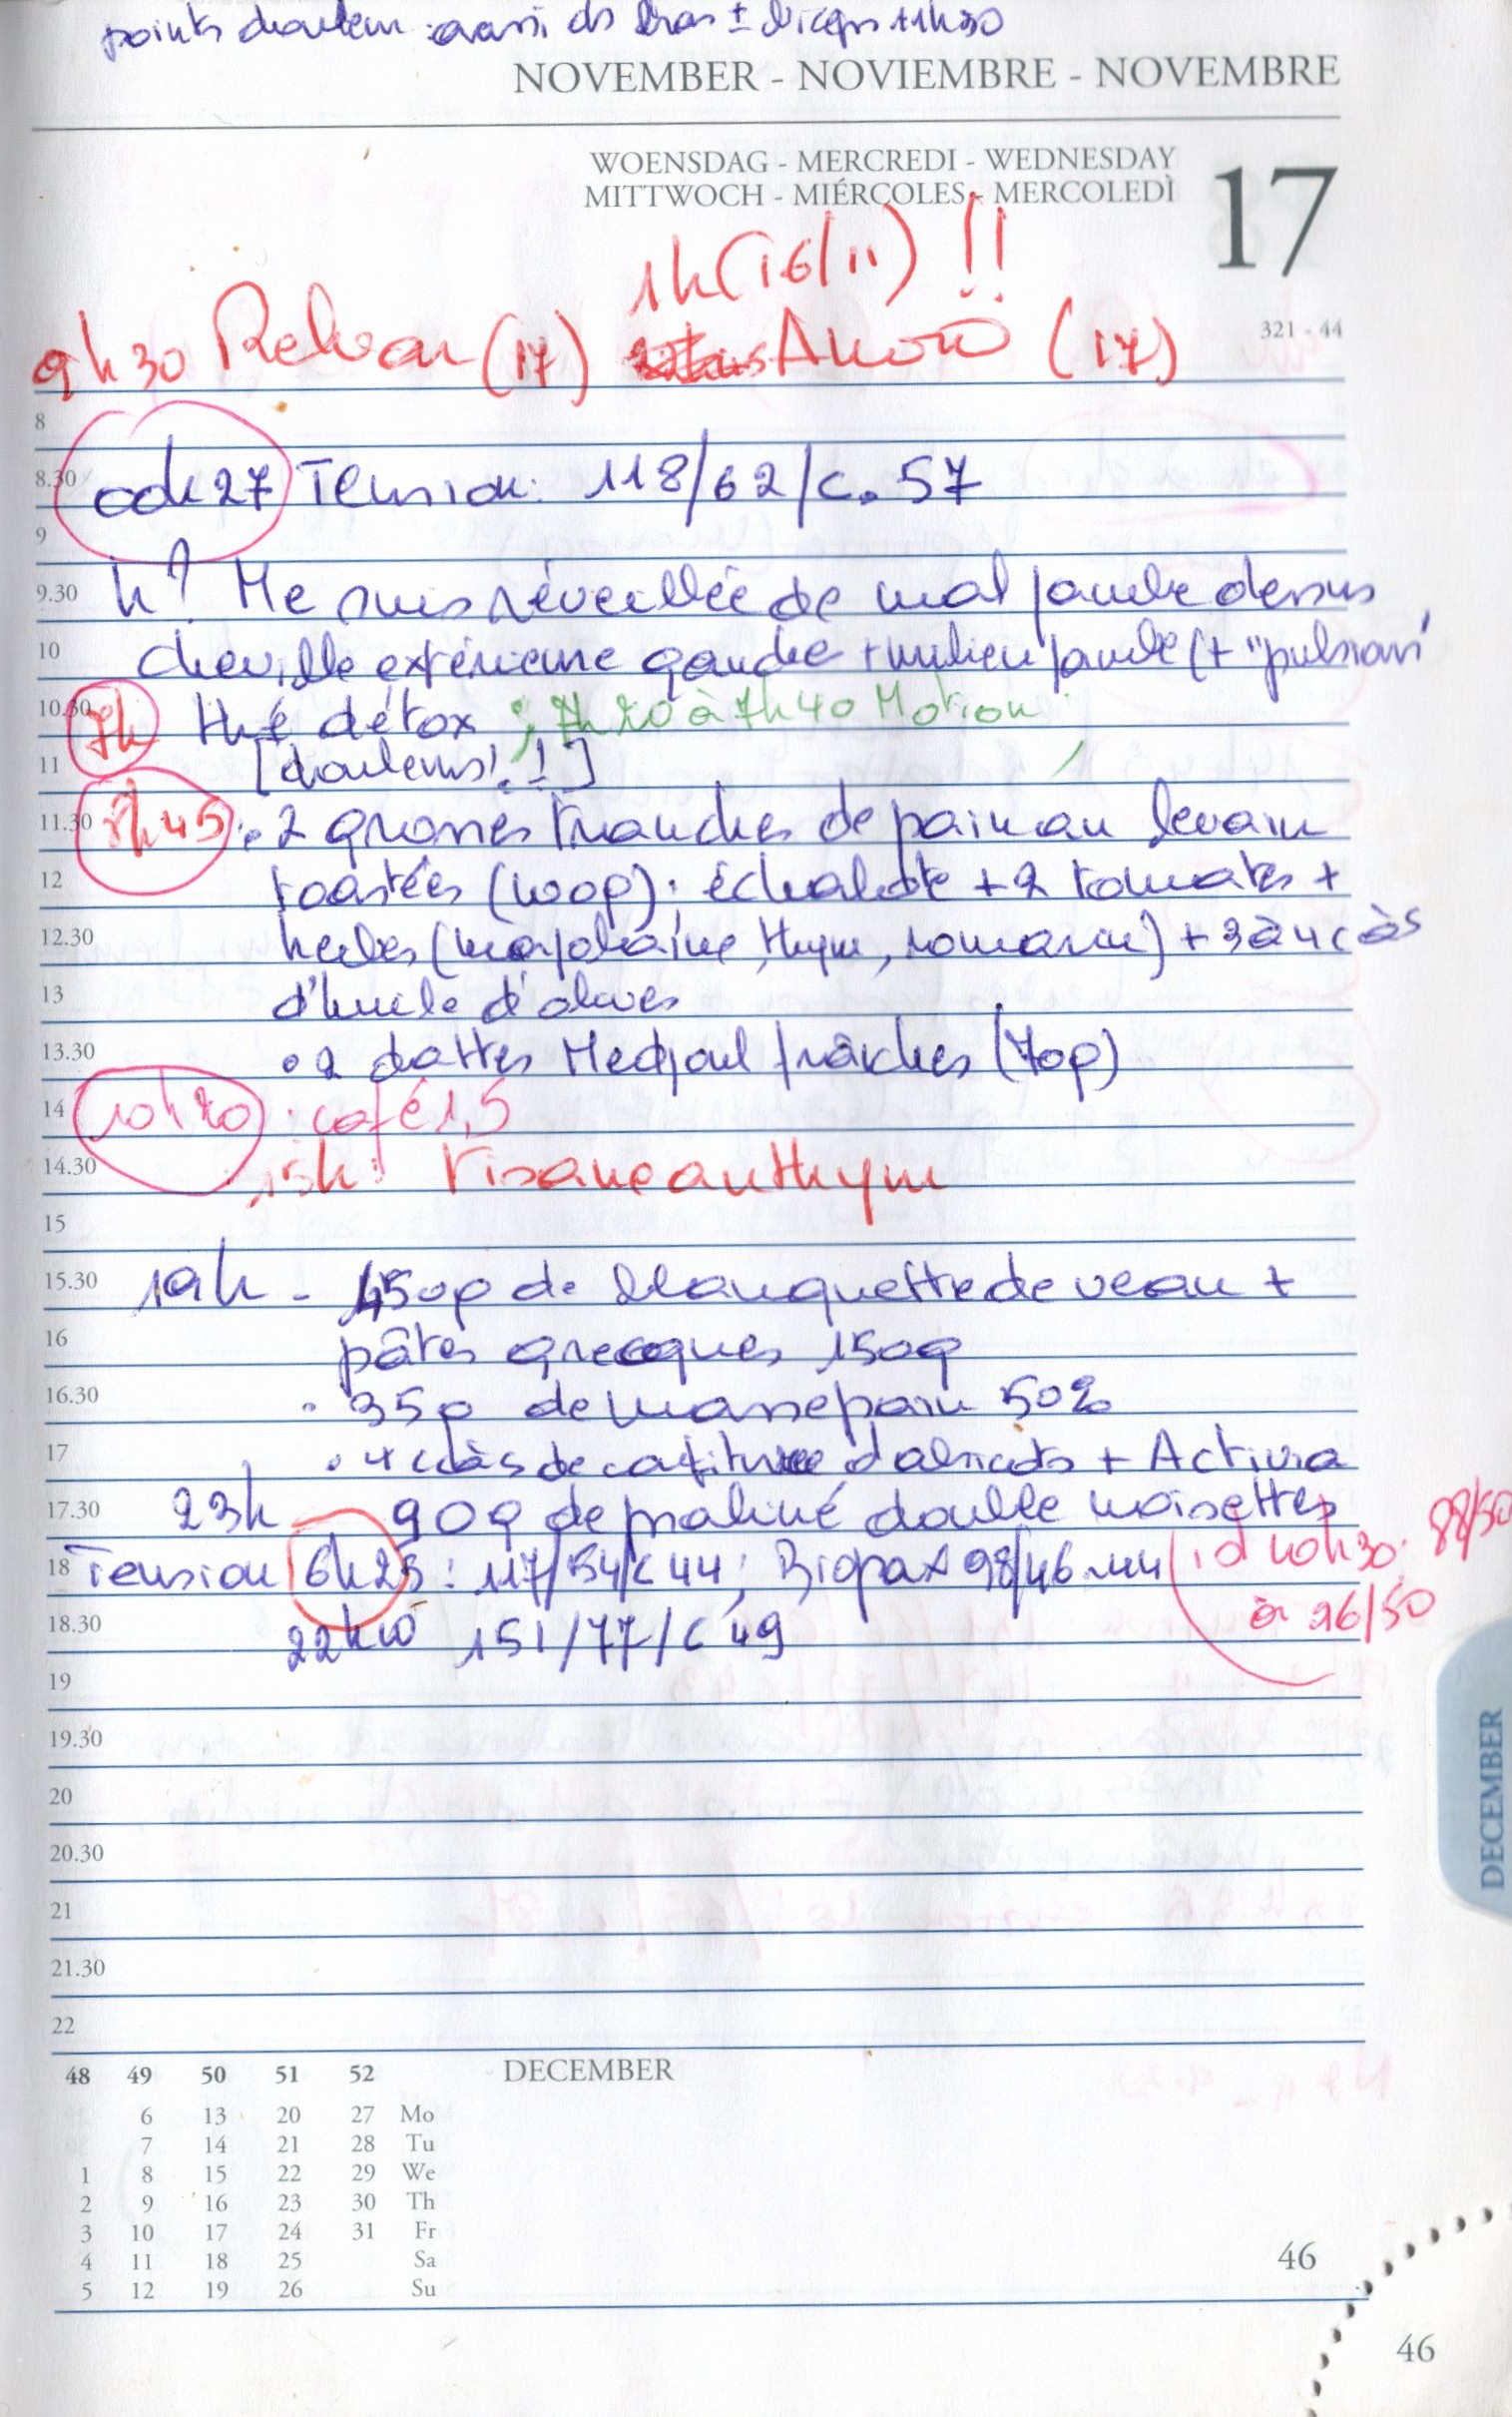 points douleur: aussi ds bras ± biceps 11h30
NOVEMBER - NOVIEMBRE - NOVEMBRE
WOENSDAG - MERCREDI - WEDNESDAY
MITTWOCH - MIÉRCOLES - MERCOLEDÌ
17
321 - 44
1h (16/11) !!
9h30 Relvar (17) (17)
8
8.30 00h27 Tension: 118/62/c. 57
9
9.30 h? Me suis réveillée de mal jambe dessus
10 cheville extérieure gauche + milieu jambe (+ "pulsions"
10.30 7h thé détox ; 7h20 à 7h40 Motion
11 [douleurs!!]
11.30 8h45 : . 2 grosses tranches de pain au levain
12 toastées (100g); échalote + 2 tomates +
12.30 herbes (marjolaine, thym, romarin) + 3 à 4 c à s
13 d'huile d'olives
13.30 . 2 dattes Medjoul fraîches (70g)
14 10h20 : café 1,5
14.30 15h: Tisane au thym
15
15.30 19h - 450g de blanquette de veau +
16 pâtes grecques 150g
16.30 . 35g de massepain 50%
17 . 4 c à s de confiture d'abricots + Activia
17.30 23h - 90g de praliné double noisettes
18 Tension 6h25 : 117/54/c 44; 98/46 44 10h30: 88/50
à 96/50
18.30 22h10 151/77/c 49
19
19.30
20
20.30
21
21.30
22
48 49 50 51 52 DECEMBER
6 13 20 27 Mo
7 14 21 28 Tu
1 8 15 22 29 We
2 9 16 23 30 Th
3 10 17 24 31 Fr
4 11 18 25 Sa
5 12 19 26 Su
46
46
DECEMBER